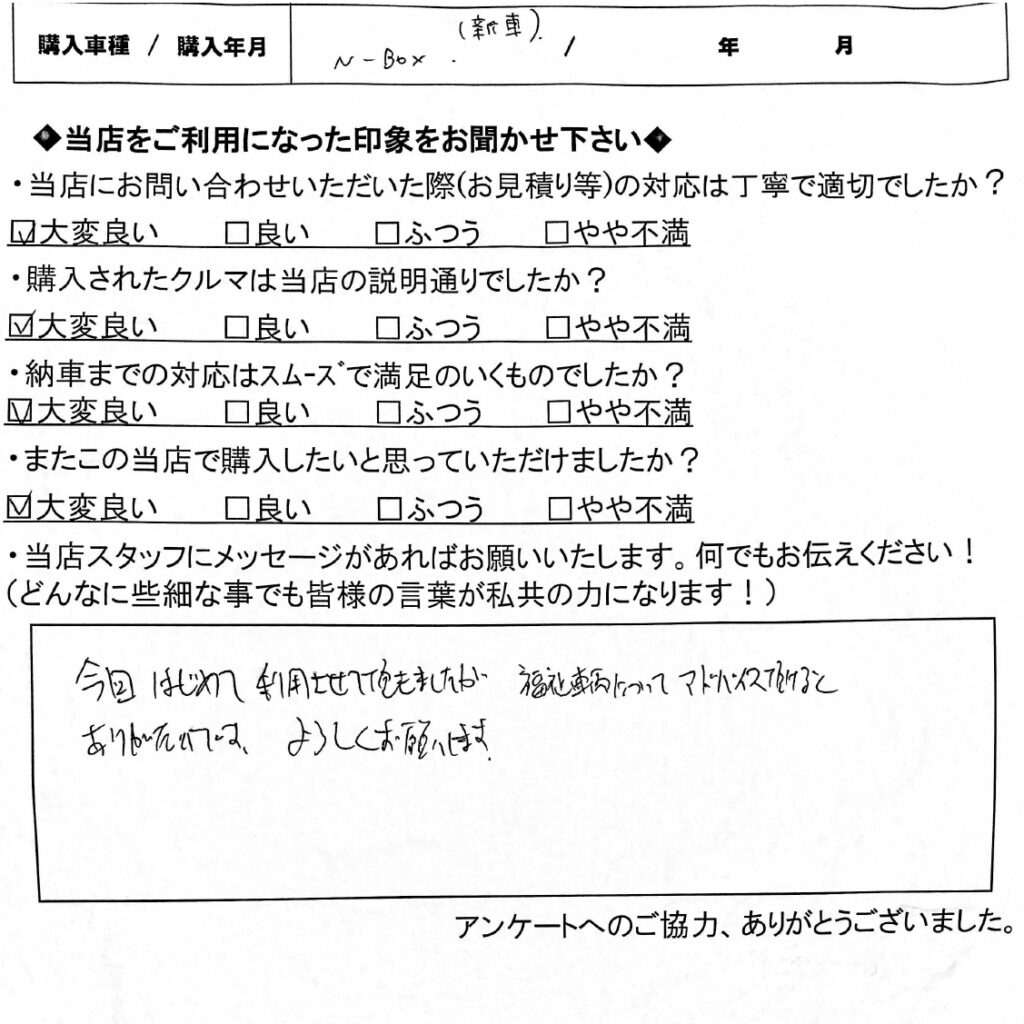 購入車種 / 購入年月 N-Box (新車). / 年 月
◆当店をご利用になった印象をお聞かせ下さい◆
・当店にお問い合わせいただいた際(お見積り等)の対応は丁寧で適切でしたか？
☑大変良い □良い □ふつう □やや不満
・購入されたクルマは当店の説明通りでしたか？
☑大変良い □良い □ふつう □やや不満
・納車までの対応はｽﾑｰｽﾞで満足のいくものでしたか？
☑大変良い □良い □ふつう □やや不満
・またこの当店で購入したいと思っていただけましたか？
☑大変良い □良い □ふつう □やや不満
・当店スタッフにメッセージがあればお願いいたします。何でもお伝えください！
(どんなに些細な事でも皆様の言葉が私共の力になります！)
今回 はじめて 利用させて頂きましたが 福祉車両について アドバイス頂けると
ありがたいです、 よろしくお願いします.
アンケートへのご協力、ありがとうございました。